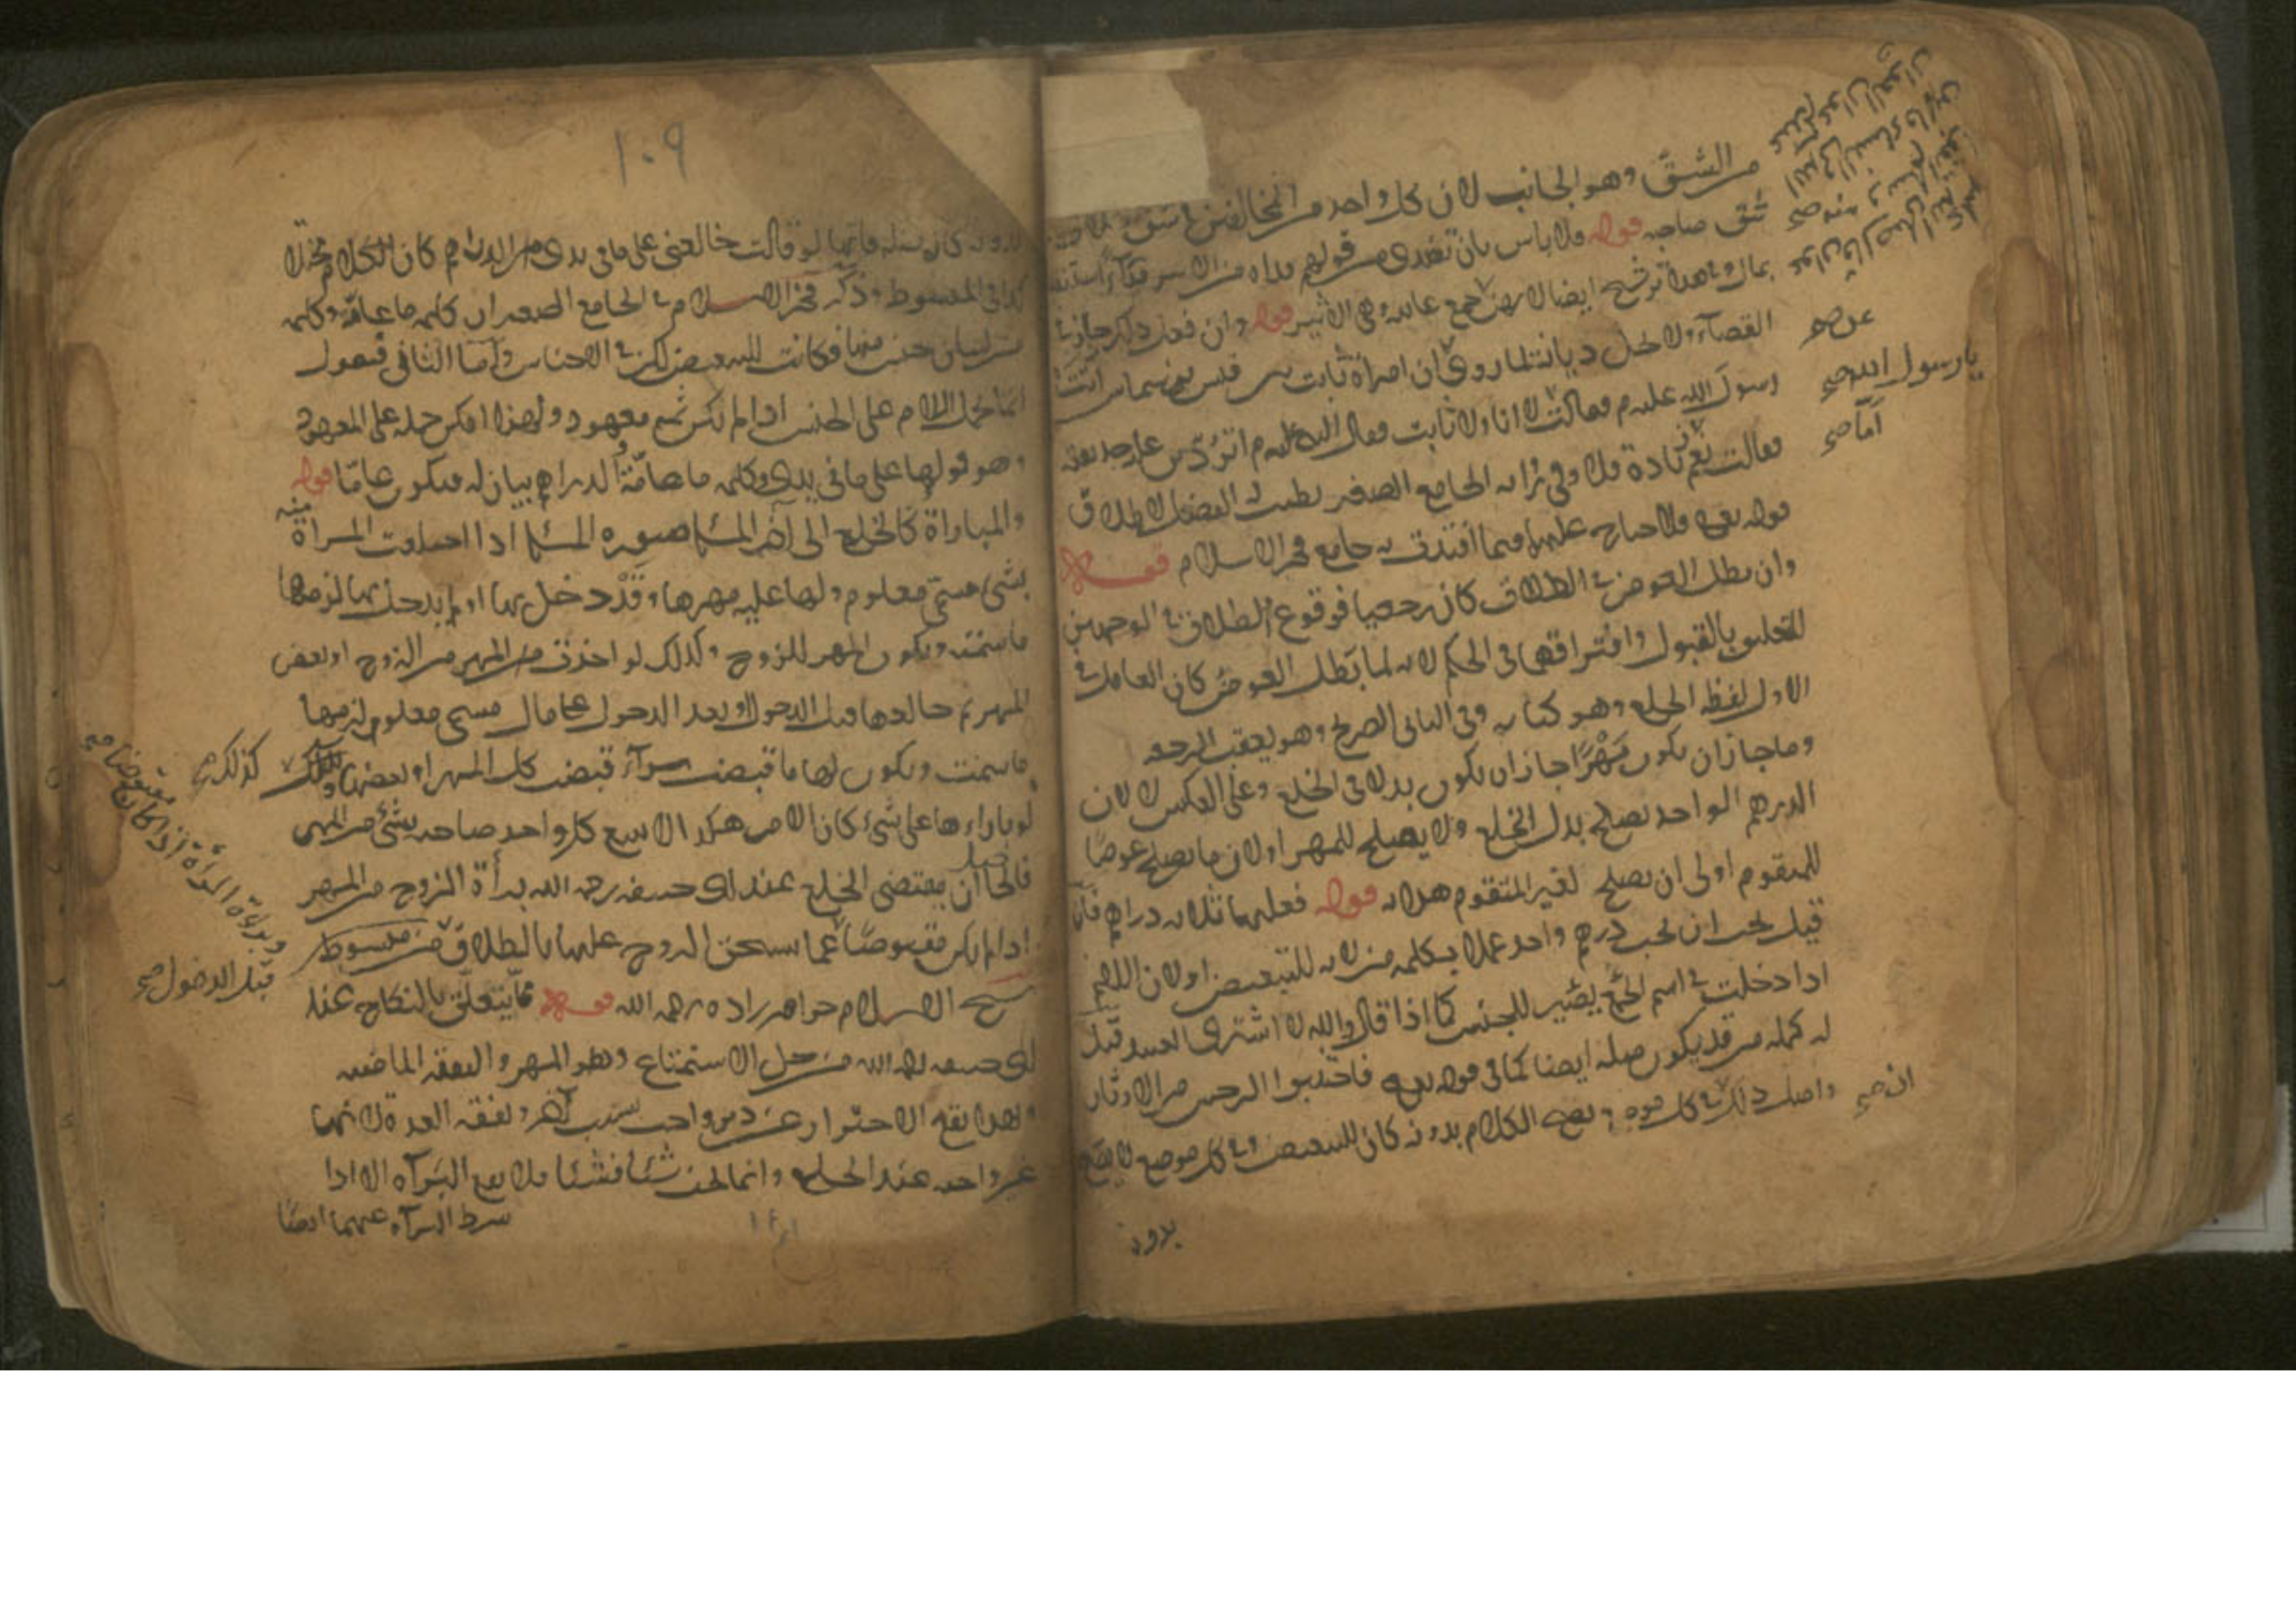 من الشق وهو الجانب لان كل واحد من المتخالفين في شق
شق صاحبه قوله ولا باس بان تفتدى من قولهم فداه من الاسر فداء استنقذه
بمال وفي هذا ترشيح ايضا لانهن جمع عانية وهي الاسير قوله وان فعل ذلك جاز في
القضاء ولا يحل ديانة لما روى ان امراة ثابت بن قيس بن شماس اتت
رسول الله عليه م فقالت لا انا ولا ثابت فقال النبي عليه م اتردين عليه حديقته
فقالت نعم وزيادة فلا وفي رواية الجامع الصغير يطيب له الفضل لاطلاق
قوله تعالى فلا جناح عليهما فيما افتدت به جامع فخر الاسلام قوله
وان بطل العوض في الطلاق كان رجعيا فوقوع الطلاق في الوجهين
للتعليق بالقبول وافتراقهما في الحكم لانه لما بطل العوض كان العامل في
الاول لفظ الخلع وهو كناية وفي الثاني الصريح وهو يعقب الرجعة
وما جاز ان يكون مهرا جاز ان يكون بدلا في الخلع وعلى العكس لا لان
الدرهم الواحد يصلح بدل الخلع ولا يصلح للمهر او لان ما يصلح عوضا
للمتقوم اولى ان يصلح لغير المتقوم هداية قوله فعليها ثلاثة دراهم فان
قيل يجب ان يجب درهم واحد عملا بكلمة من لانه للتبعيض او لان اللام
اذا دخلت في اسم الجمع يصير للجنس كما اذا قال والله لا اشترى العبيد قيل
له كلمة من قد يكون صلة ايضا كما في قوله تعالى فاجتنبوا الرجس من الاوثان
واصل ذلك في كل موضع يصح الكلام بدونه كان للتبعيض وفي كل موضع لا يصح
بدونه
عن صح
يا رسول الله صح
اما صح
ان صح
١٠٩
بدونه كان صلة فانها لو قالت خالعنى على ما في يدى من الدراهم كان الكلام مختلا
كذا في المبسوط وذكر فخر الاسلام في الجامع الصغير ان كلمة ما عامة وكلمة
انما يحمل اللام على الجنس اذا لم يكن ثم معهود ولهذا امكن حمله على المعهود
وهو قولها على ما في يدى وكلمة ما عامة والدراهم بيان له فيكون عاما قوله
والمباراة كالخلع الى آخر المسئلة صورة المسئلة اذا اختلعت المراة منه
بشئ مسمى معلوم ولها عليه مهرها وقد دخل بها او لم يدخل بها لزمها
ما سمت ويكون المهر للزوج وكذلك لو اخذت من المهر من الزوج او بعض
المهر ثم خالعها قبل الدخول او بعد الدخول على مال مسمى معلوم لزمها
ما سمت ويكون لها ما قبضت سواء قبضت كل المهر او بعضها وكذلك
لو باراءها على شئ كان الامر هكذا لا يتبع كل واحد صاحبه بشئ من المهر
فالحاصل ان مقتضى الخلع عند ابى حنيفة رحمه الله براءة الزوج من المهر
اذا لم يكن مقبوضا عما يستحق الزوج عليها بالطلاق من مبسوط
شيخ الاسلام خواهر زاده رحمه الله قوله مما يتعلق بالنكاح عند
ابى حنيفة رحمه الله من حل الاستمتاع وهو المهر والنفقة الماضية
وبهذا يقع الاحتراز عن دين واجب بسبب آخر ونفقة العدة لانها
غير واجبة عند الخلع وانما تجب شيئا فشيئا فلا يقع البراءة الا اذا
شرط البراءة عنهما ايضا
كذلك صح
وبراءة المراة اذا كان مقبوضا صح
قبل الدخول صح